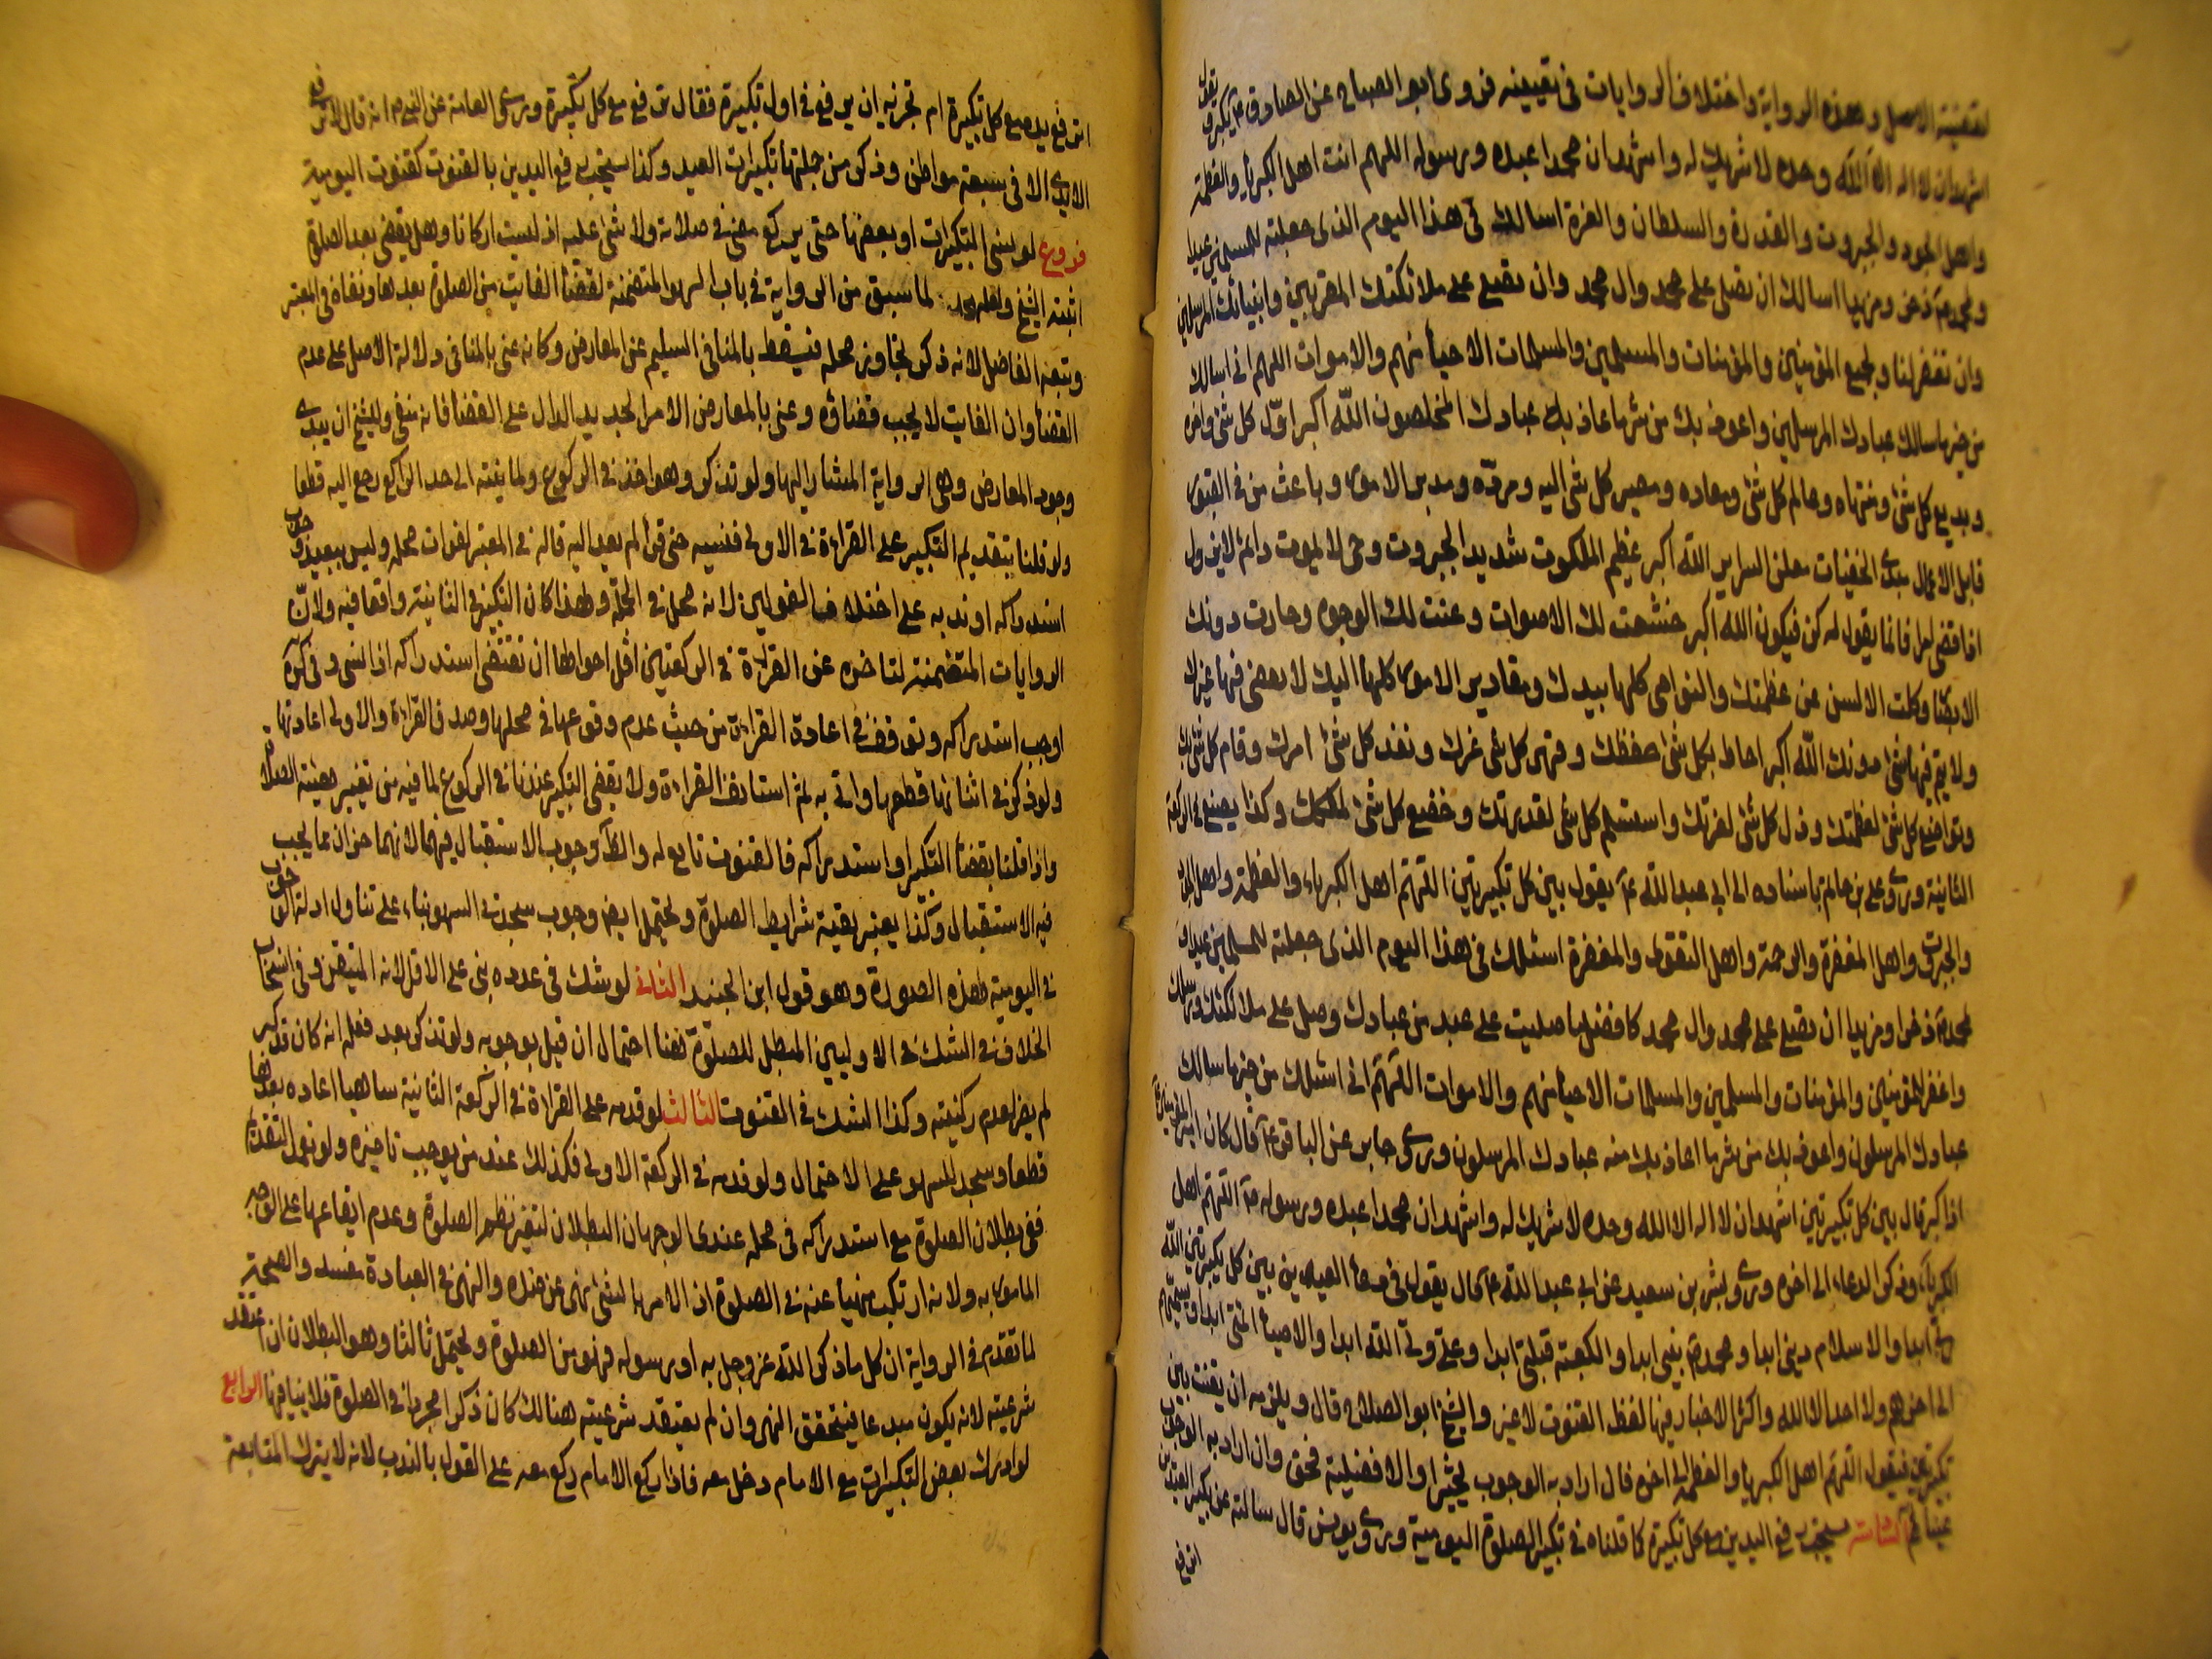 لقضية الاصل وهذه الرواية واختلاف الروايات في تعيينه فروى ابو الصباح عن الصادق ع يكبر ويقول
اشهد ان لا اله الا الله وحده لا شريك له واشهد ان محمدا عبده ورسوله اللهم انت اهل الكبرياء والعظمة
واهل الجود والجبروت والقدرة والسلطان والعزة اسالك في هذا اليوم الذي جعلته للمسلمين عيدا
ولمحمد ص ذخرا ومزيدا اسالك ان تصلي على محمد وال محمد وان تصلي على ملائكتك المقربين وانبيائك المرسلين
وان تغفر لنا ولجميع المؤمنين والمؤمنات والمسلمين والمسلمات الاحياء منهم والاموات اللهم اني اسالك
من خير ما سالك عبادك المرسلين واعوذ بك من شر ما عاذ بك عبادك المخلصون الله اكبر اول كل شئ واخره
وبديع كل شئ ومنتهاه وعالم كل شئ ومعاده ومصير كل شئ اليه ومرده ومدبر الامور وباعث من في القبور
قابل الاعمال مبدئ الخفيات معلن السراير الله اكبر عظيم الملكوت شديد الجبروت وحي لا يموت دائم لا يزول
اذا قضى امرا فانما يقول له كن فيكون الله اكبر خشعت لك الاصوات وعنت لك الوجوه وحارت دونك
الابصار وكلت الالسن عن عظمتك والنواصي كلها بيدك ومقادير الامور كلها اليك لا يقضي فيها غيرك
ولا يتم فيها شئ دونك الله اكبر احاط بكل شئ حفظك وقهر كل شئ عزك ونفذ كل شئ امرك وقام كل شئ بك
وتواضع كل شئ لعظمتك وذل كل شئ لعزتك واستسلم كل شئ لقدرتك وخضع كل شئ لملكك وكذا يصنع في الركعة
الثانية وروى علي بن حاتم باسناده الى ابي عبد الله ع يقول بين كل تكبيرتين اللهم اهل الكبرياء والعظمة واهل الجود
والجبروت واهل المغفرة والرحمة واهل التقوى والمغفرة اسئلك في هذا اليوم الذي جعلته للمسلمين عيدا و
لمحمد ص ذخرا ومزيدا ان تصلي على محمد وال محمد كافضل ما صليت على عبد من عبادك وصل على ملائكتك ورسلك
واغفر للمؤمنين والمؤمنات والمسلمين والمسلمات الاحياء منهم والاموات اللهم اني اسئلك من خير ما سالك
عبادك المرسلون واعوذ بك من شر ما اعاذ بك منه عبادك المرسلون وروى جابر عن الباقر ع قال كان امير المؤمنين ع
اذا كبر قال بين كل تكبيرتين اشهد ان لا اله الا الله وحده لا شريك له واشهد ان محمدا عبده ورسوله ص اللهم اهل
الكبرياء وذكر الدعاء الى اخره وروى بشر بن سعيد عن ابي عبد الله ع قال يقول في دعاء العيدين بين كل تكبيرتين الله
ربي ابدا والاسلام ديني ابدا ومحمد ص نبيي ابدا والكعبة قبلتي ابدا وعلي ولي الله ابدا والاوصياء ائمتي ابدا ويسميهم
الى اخرهم ولا احد الا الله واكثر الاخبار فيها لفظ القنوت لا غير والشيخ ابو الصلاح قال ويلزمه ان يقنت بين
تكبيرتين فيقول اللهم اهل الكبرياء والعظمة الى اخره فان اراد به الوجوب تخييرا والافضلية فحق وان اراد به الوجوب
عينا لم الثامنة يستحب رفع اليدين مع كل تكبيرة كما قلناه في تكبير الصلوة اليومية وروى يونس قال سالته عن تكبير العيدين
ايرفع
ايرفع يده مع كل تكبيرة ام تجزيه ان يرفع في اول تكبيرة فقال يرفع مع كل تكبيرة وروى العامة عن النبي ص انه قال لا ترفع
الايدي الا في سبعة مواطن وذكر من جملتها تكبيرات العيد وكذا يستحب رفع اليدين بالقنوت كقنوت اليومية
فروع لو نسي التكبيرات او بعضها حتى يركع مضى في صلاته ولا شئ عليه اذ ليست اركانا وهل يقضي بعد الصلوة
اثبته الشيخ ولعله لما سبق من الرواية في باب السهو المتضمنة لقضاء الفايت من الصلوة بعدها ونفاه في المعتبر
وتبعه الفاضل لانه ذكر تجاوز محله فيسقط بالمنافي السليم عن المعارض وكانه عنى بالمنافي دلالة الاصل على عدم
القضاء وان الفايت لا يجب قضاؤه وعنى بالمعارض الامر الجديد الدال على القضاء فانه منفي وللشيخ ان يبدي
وجود المعارض وهي الرواية المشار اليها ولو تذكر وهو اخذ في الركوع ولما ينته الى حد الراكع رجع اليه قطعا
ولو قلنا بتقديم التكبير على القراءة في الاولى فنسيه حتى قرأ لم يعد اليه قاله في المعتبر لفوات محله وليس ببعيد وجوب
استدراكه او ندبه على اختلاف القولين لانه محل في الجملة ولهذا كان التكبير في الثانية واقعا فيه ولان
الروايات المتضمنة لتاخره عن القراءة في الركعتين اقل احوالها ان تقتضي استدراكه اذا نسي وفي كره
اوجب استدراكه وتوقف في اعادة القراءة من حيث عدم وقوعها في محلها وصدق القراءة والاولى اعادتها
ولو ذكر في اثنائها قطعها واتى به ثم استانف القراءة ولا يقضى التكبير عندنا في الركوع لما فيه من تغيير هيئة الصلاة
واذا قلنا بقضاء التكبير او استدراكه فالقنوت تابع له والظاهر وجوب الاستقبال فيهما لانهما جزءان مما يجب
فيه الاستقبال وكذا يعتبر بقية شرايط الصلوة ويحتمل ايضا وجوب سجدتي السهو بناء على تناول ادلة الوجوب
في اليومية لهذه الصورة وهو قول ابن الجنيد الثاني لو شك في عدده بنى على الاقل لانه المتيقن وفي انسحاب
الخلاف في الشك في الاوليين المبطل للصلوة هنا احتمال ان قيل بوجوبه ولو تذكر بعد فعله انه كان قد كبر
لم يضر لعدم ركنيته وكذا الشك في القنوت الثالث لو قدمه على القراءة في الركعة الثانية ساهيا اعاده بعدها
قطعا وسجد للسهو على الاحتمال ولو قدمه في الركعة الاولى فكذلك عند من يوجب تاخيره ولو تعمد التقديم
ففي بطلان الصلوة مع استدراكه في محله عندي الوجهان البطلان لتغير نظم الصلوة وعدم ايقاعها على الوجه
المامور به ولانه ارتكب منهيا عنه في الصلوة اذ الامر بالشئ نهي عن ضده والنهي في العبادة مفسد والصحة
لما تقدم في الرواية ان كل ما ذكر الله عز وجل به او رسوله فهو من الصلوة ويحتمل ثالثا وهو البطلان ان اعتقد
شرعيته لانه يكون مبدعا فيتحقق النهي وان لم يعتقد شرعيته هنالك كان ذكرا مجردا في الصلوة فلا ينافيها الرابع
لو ادرك بعض التكبيرات مع الامام دخل معه فاذا ركع الامام ركع معه على القول بالندب لانه لا يترك المتابعة